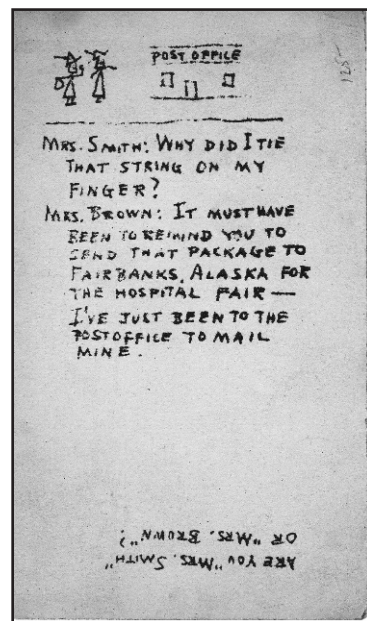 POST OFFICE
125-
MRS. SMITH: WHY DID I TIE
THAT STRING ON MY
FINGER?
MRS. BROWN: IT MUST HAVE
BEEN TO REMIND YOU TO
SEND THAT PACKAGE TO
FAIRBANKS, ALASKA FOR
THE HOSPITAL FAIR —
I'VE JUST BEEN TO THE
POSTOFFICE TO MAIL
MINE.
ARE YOU "MRS. SMITH"
OR "MRS. BROWN"?